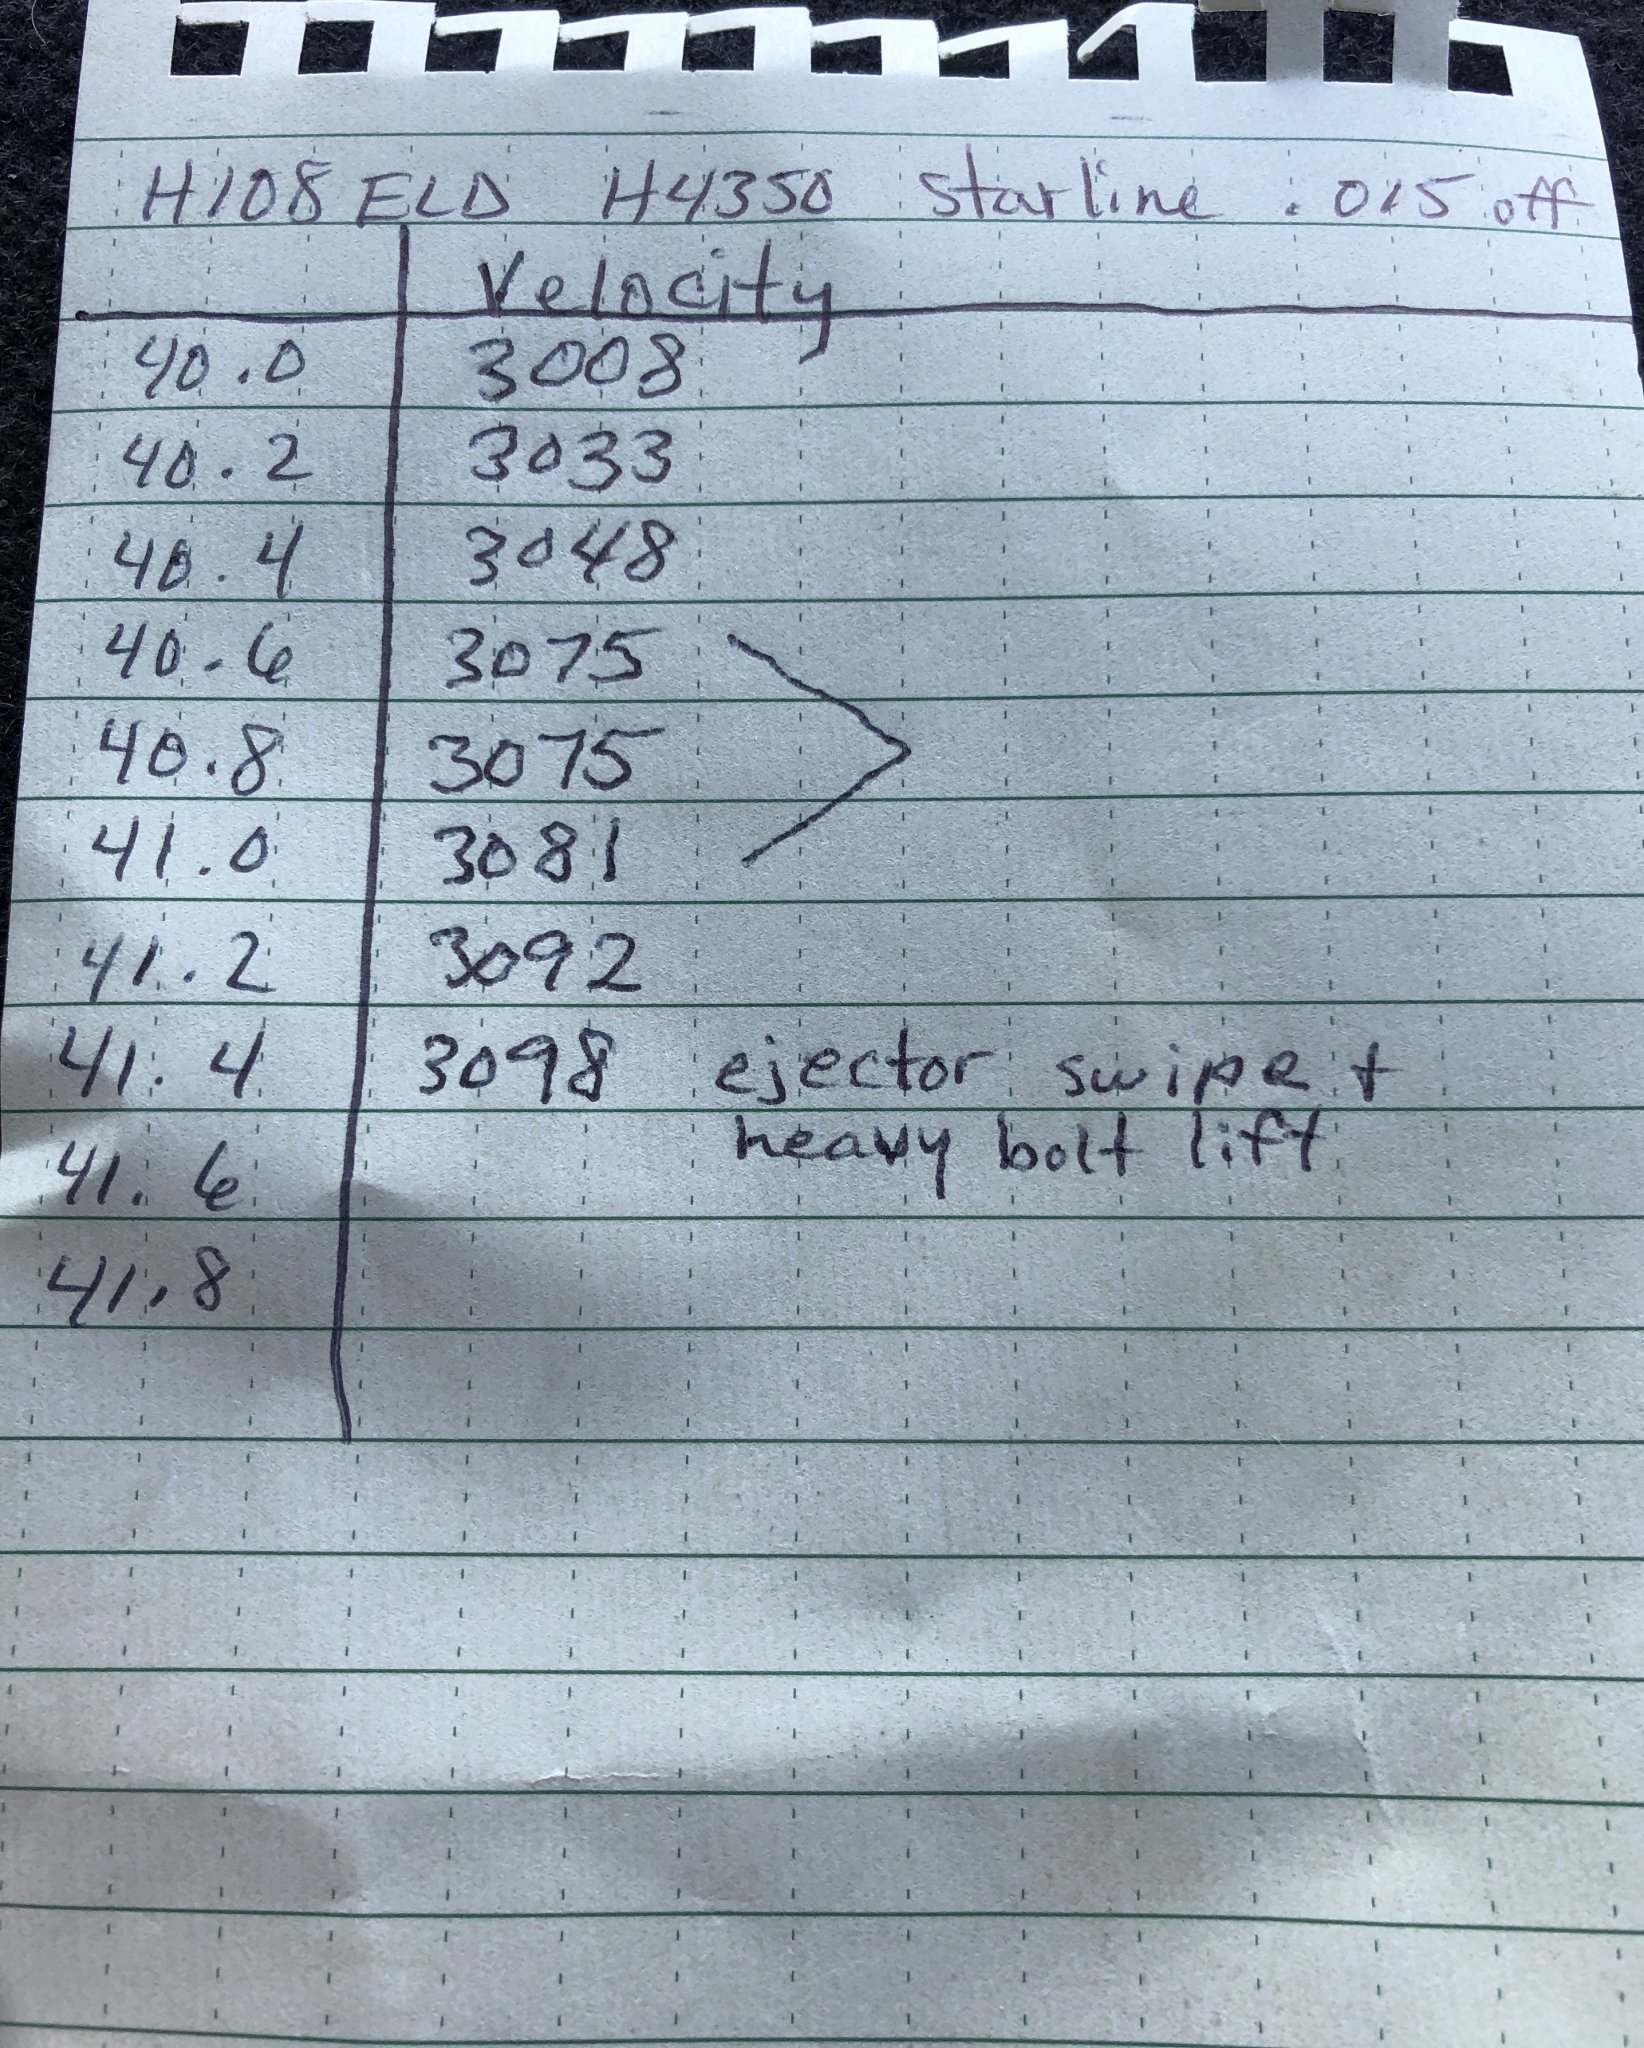 H108 ELD H4350 Starline .015 off
Velocity
40.0 3008
40.2 3033
40.4 3048
40.6 3075
40.8 3075
41.0 3081
41.2 3092
41.4 3098 ejector swipe +
heavy bolt lift
41.6
41.8